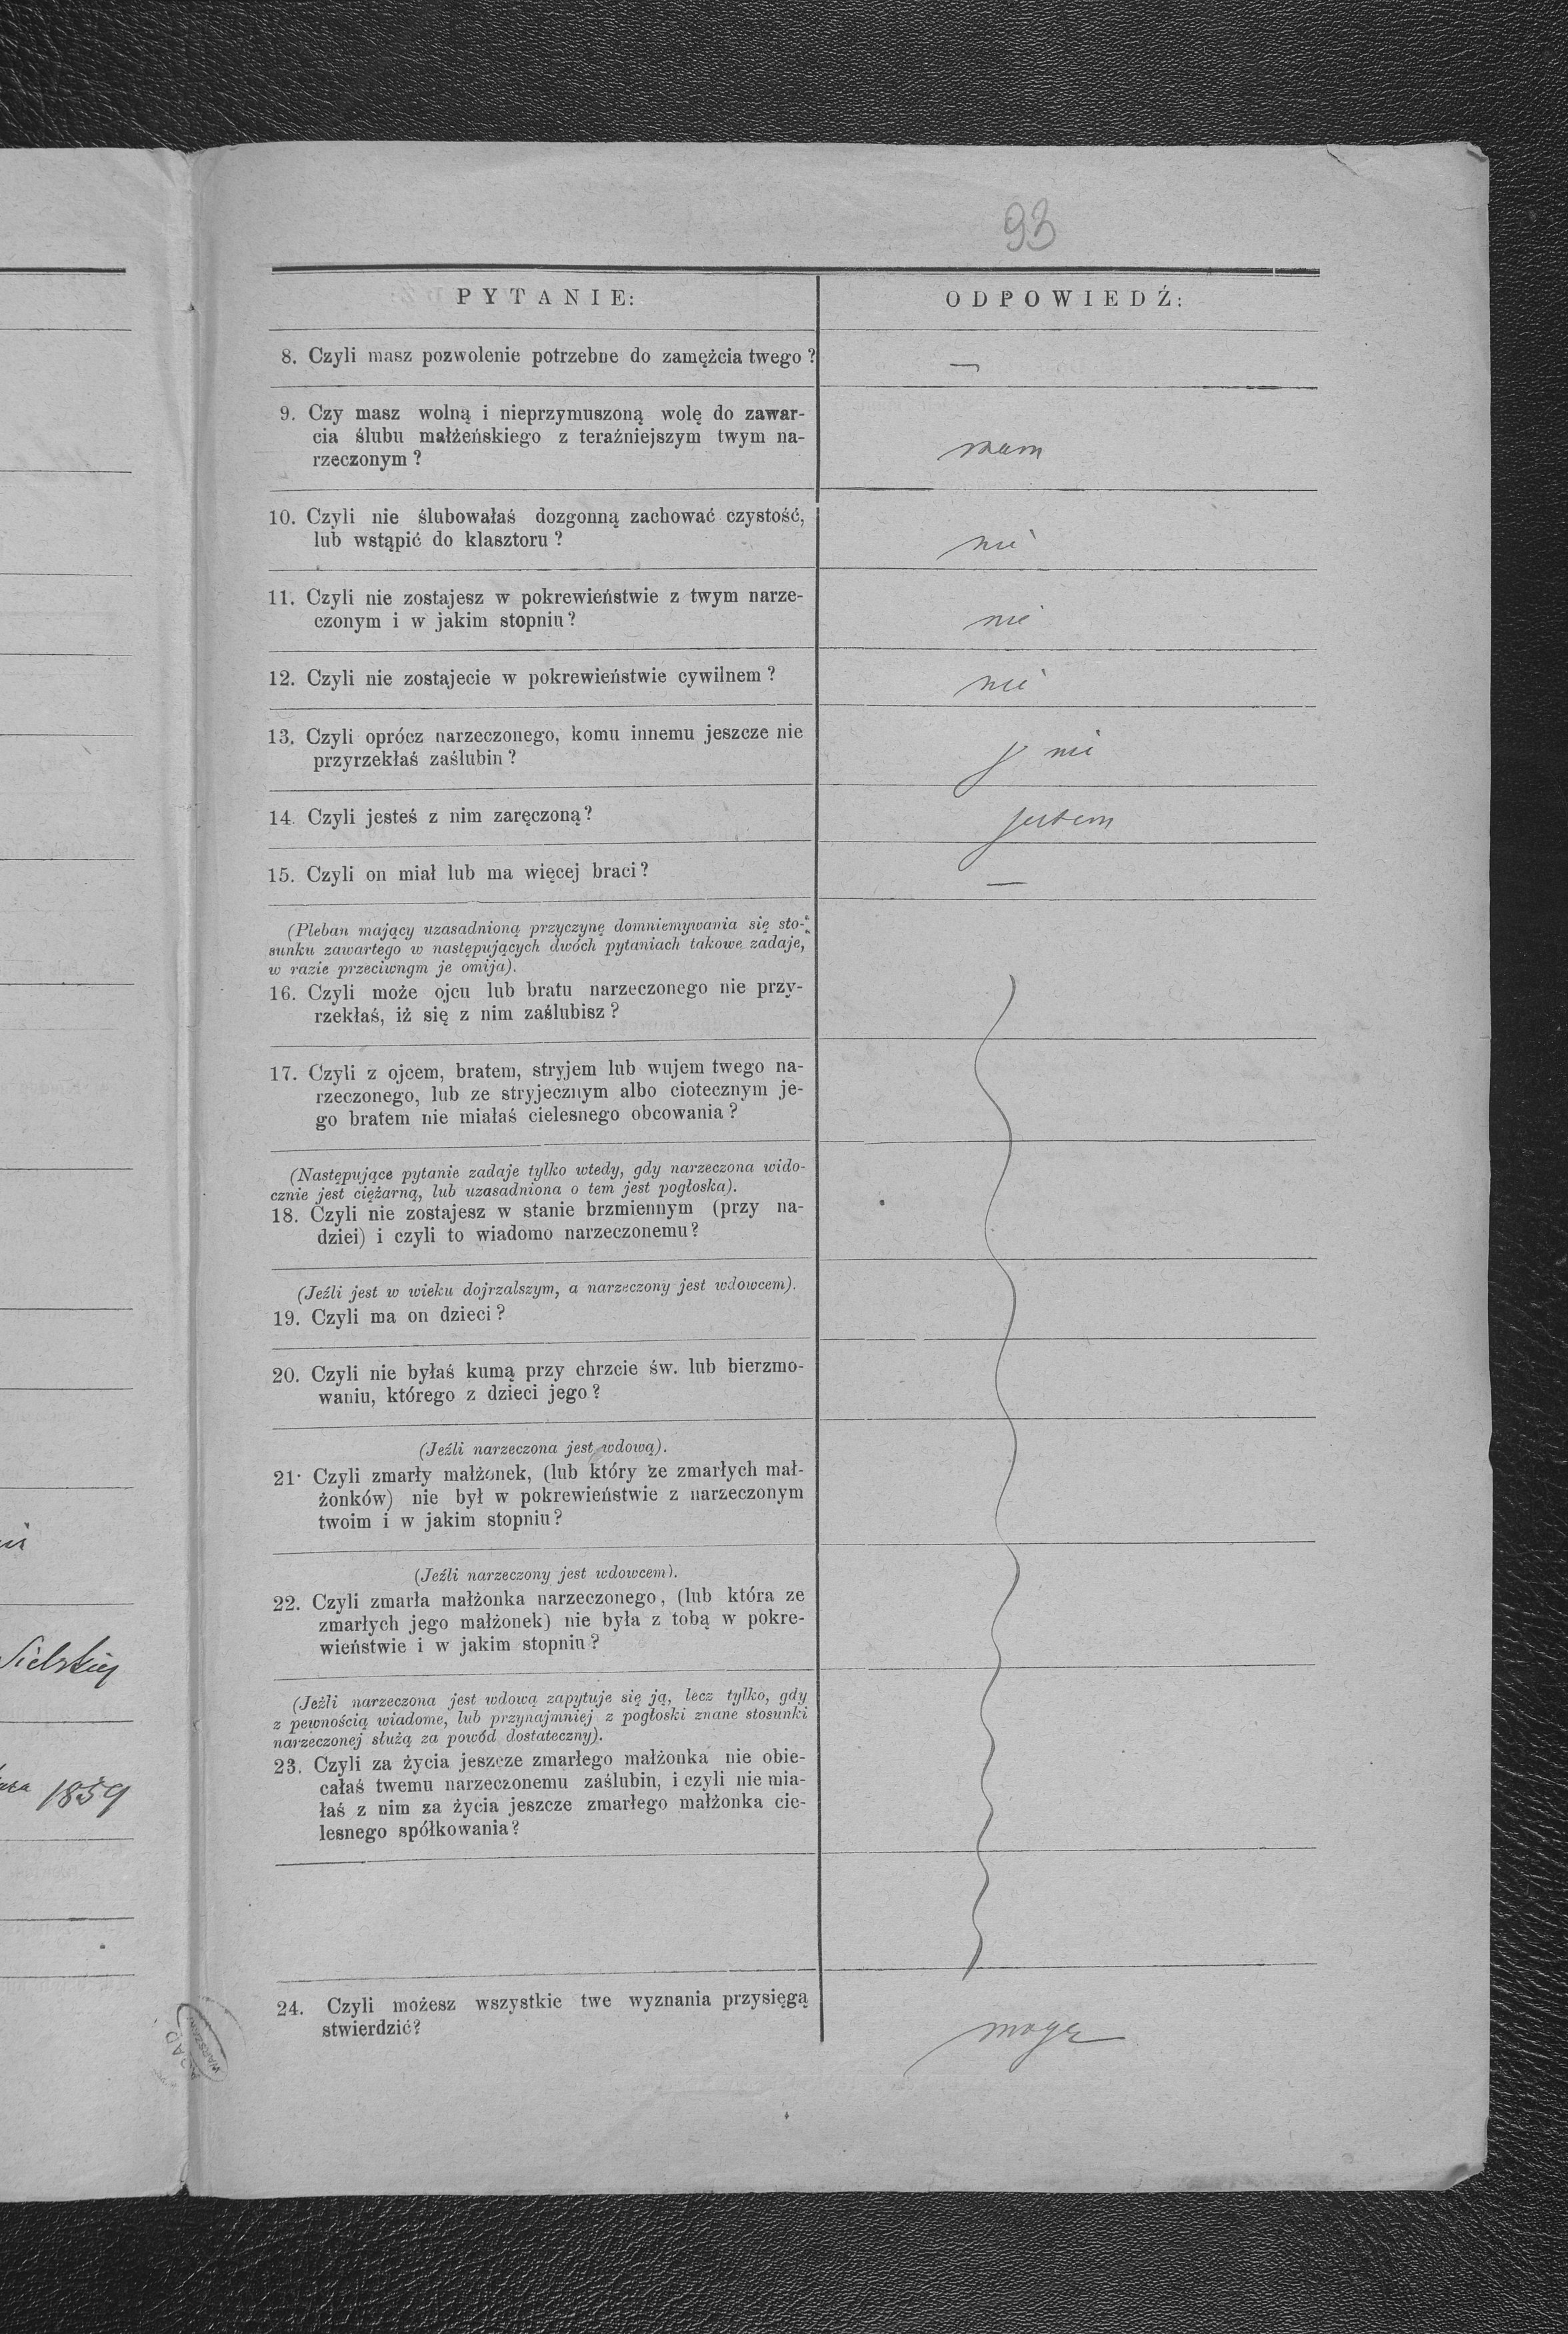 93
PYTANIE:
ODPOWIEDŹ:
8. Czyli masz pozwolenie potrzebne do zamężcia twego?
—
9. Czy masz wolną i nieprzymuszoną wolę do zawar-
cia ślubu małżeńskiego z teraźniejszym twym na-
rzeczonym?
mam
10. Czyli nie ślubowałaś dozgonną zachować czystość,
lub wstąpić do klasztoru?
nie
11. Czyli nie zostajesz w pokrewieństwie z twym narze-
czonym i w jakim stopniu?
nie
12. Czyli nie zostajecie w pokrewieństwie cywilnem?
nie
13. Czyli oprócz narzeczonego, komu innemu jeszcze nie
przyrzekłaś zaślubin?
nie
14. Czyli jesteś z nim zaręczoną?
jestem
15. Czyli on miał lub ma więcej braci?
—
(Pleban mający uzasadnioną przyczynę domniemywania się sto-
sunku zawartego w następujących dwóch pytaniach takowe zadaje,
w razie przeciwngm je omija).
16. Czyli może ojcu lub bratu narzeczonego nie przy-
rzekłaś, iż się z nim zaślubisz?
17. Czyli z ojcem, bratem, stryjem lub wujem twego na-
rzeczonego, lub ze stryjecznym albo ciotecznym je-
go bratem nie miałaś cielesnego obcowania?
(Następujące pytanie zadaje tylko wtedy, gdy narzeczona wido-
cznie jest ciężarną, lub uzasadniona o tem jest pogłoska).
18. Czyli nie zostajesz w stanie brzmiennym (przy na-
dziei) i czyli to wiadomo narzeczonemu?
(Jeźli jest w wieku dojrzalszym, a narzeczony jest wdowcem).
19. Czyli ma on dzieci?
20. Czyli nie byłaś kumą przy chrzcie św. lub bierzmo-
waniu, którego z dzieci jego?
(Jeźli narzeczona jest wdową).
21. Czyli zmarły małżonek, (lub który ze zmarłych mał-
żonków) nie był w pokrewieństwie z narzeczonym
twoim i w jakim stopniu?
(Jeźli narzeczony jest wdowcem).
22. Czyli zmarła małżonka narzeczonego, (lub która ze
zmarłych jego małżonek) nie była z tobą w pokre-
wieństwie i w jakim stopniu?
(Jeźli narzeczona jest wdową zapytuje się ją, lecz tylko, gdy
z pewnością wiadome, lub przynajmniej z pogłoski znane stosunki
narzeczonej służą za powód dostateczny).
23. Czyli za życia jeszcze zmarłego małżonka nie obie-
całaś twemu narzeczonemu zaślubin, i czyli nie mia-
łaś z nim za życia jeszcze zmarłego małżonka cie-
lesnego spółkowania?
24. Czyli możesz wszystkie twe wyznania przysięgą
stwierdzić?
mogę
1859